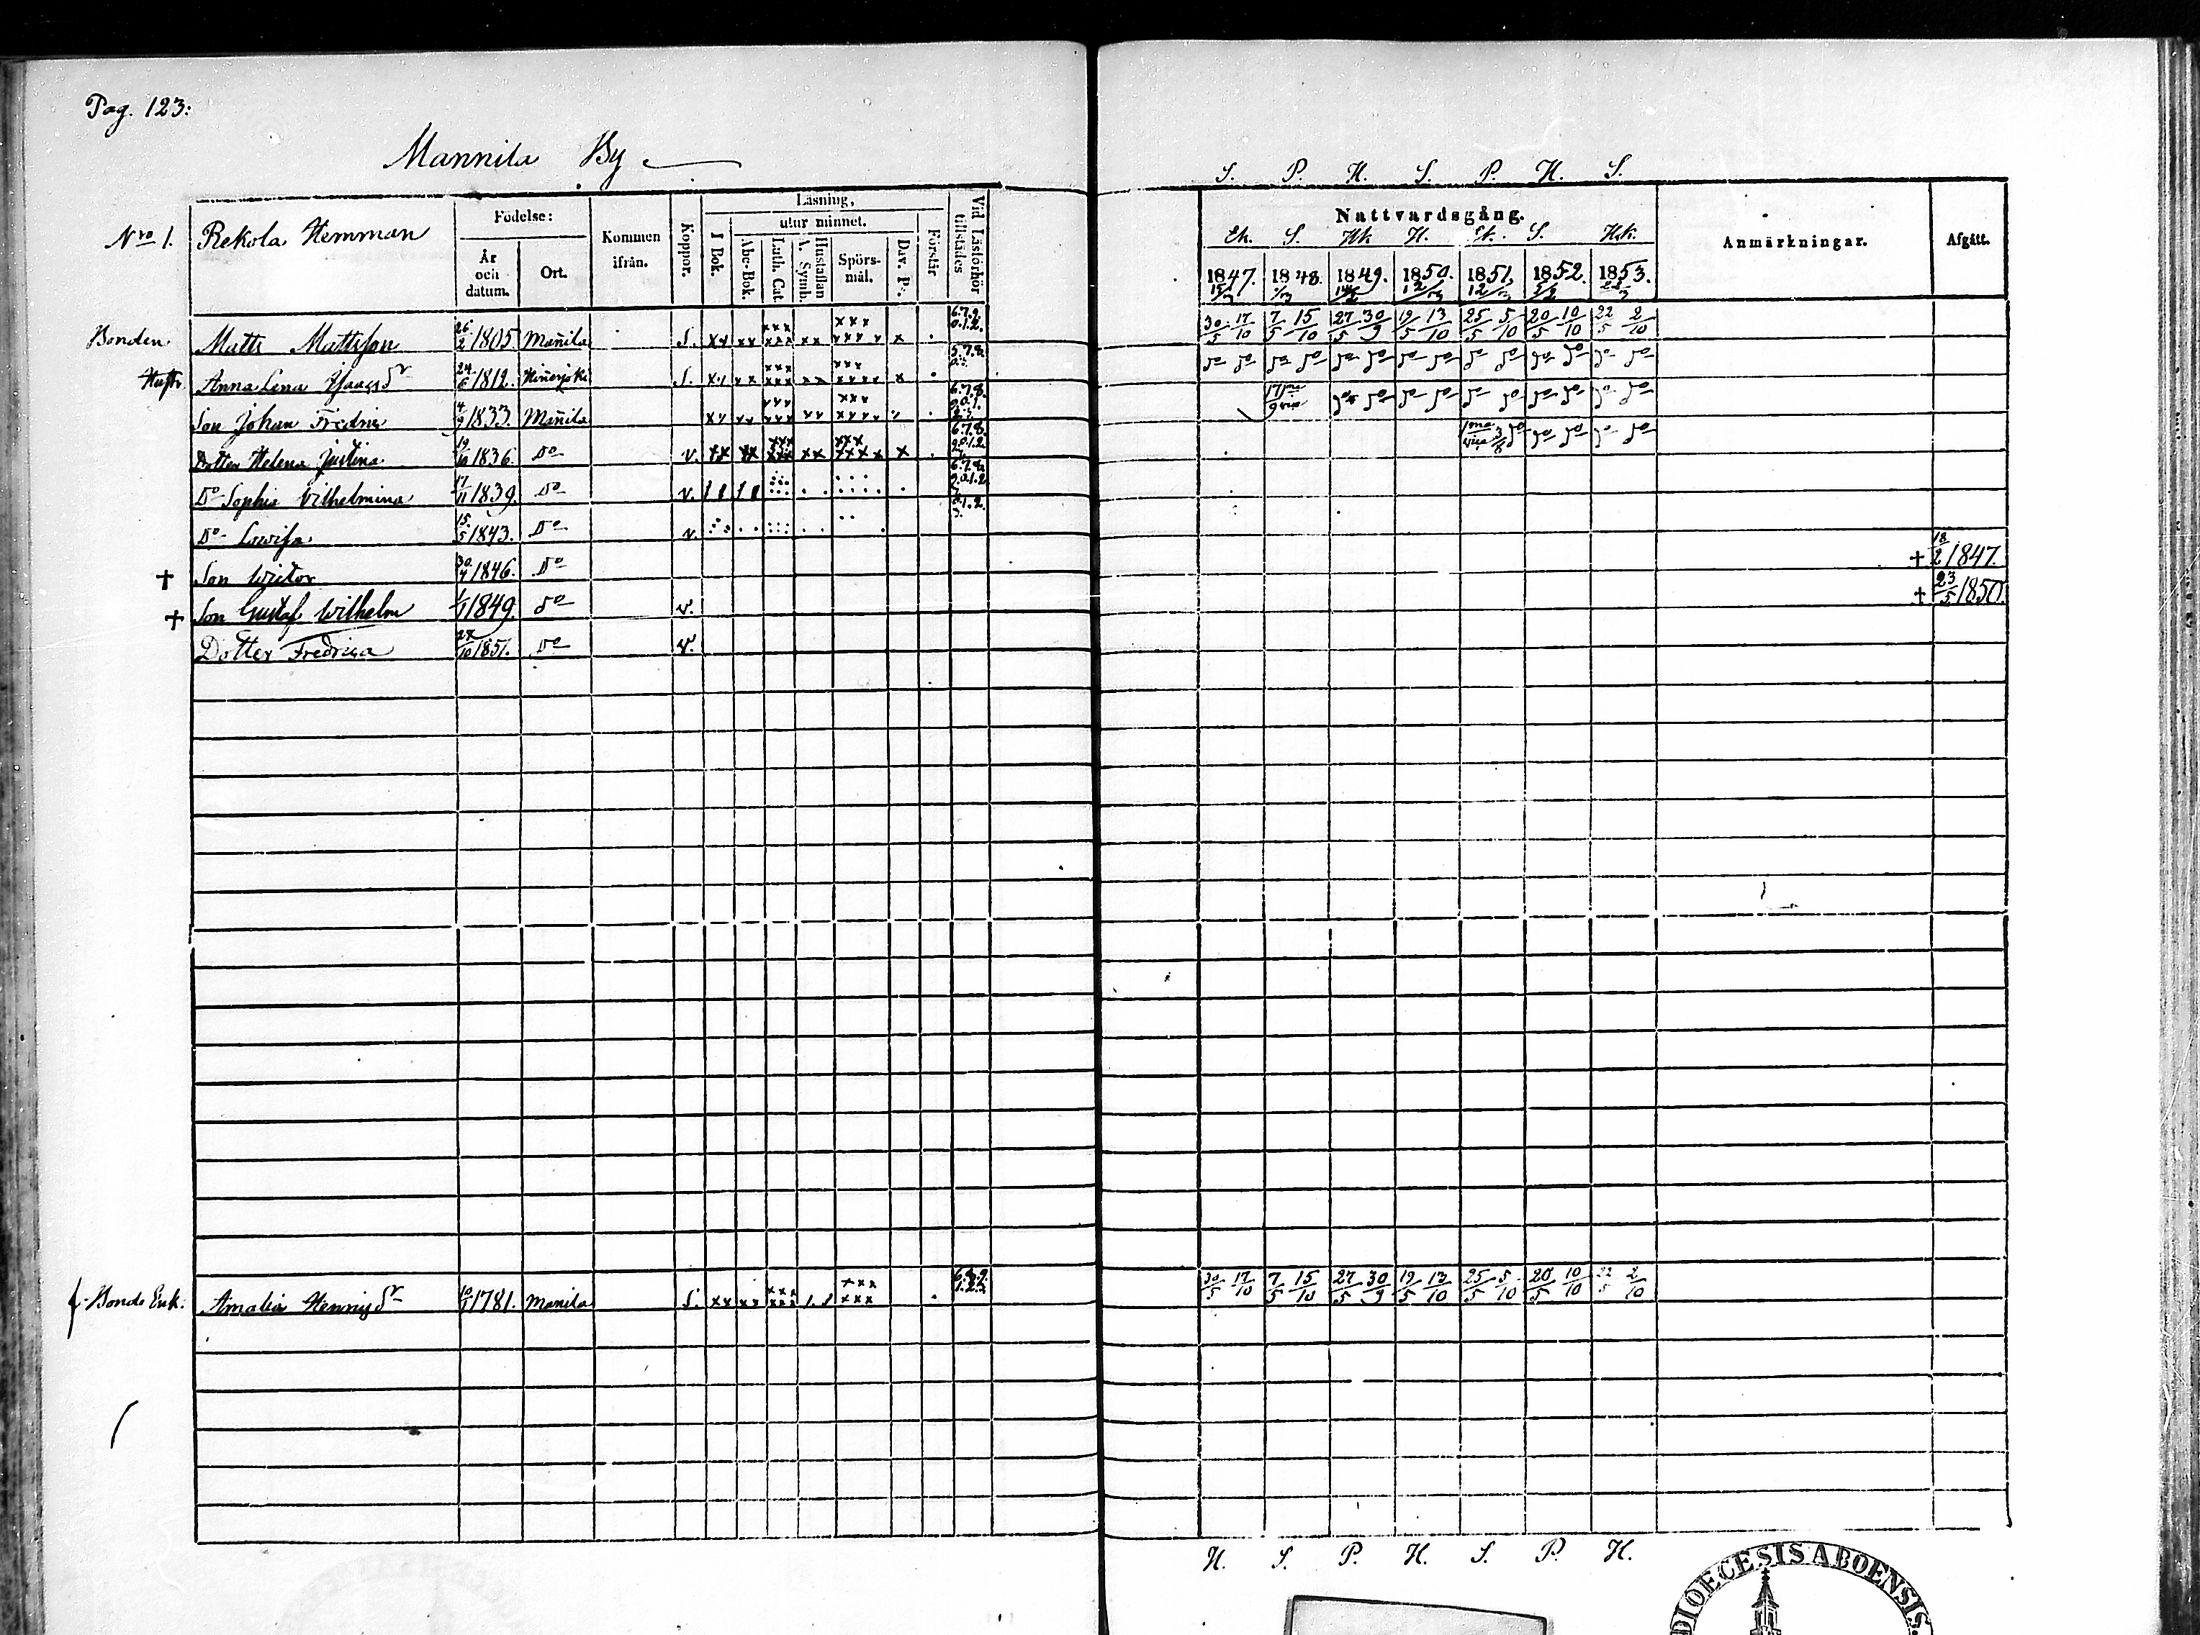 Pag. 123:
Mannila By
S. P. H. S. P. H. S.
Nro 1. Rekola Hemman
Födelse:
År och datum.
Ort.
Kommen ifrån.
Koppor.
Läsning,
I Bok.
utur minnet.
Abc-Bok.
Luth. Cat.
Hustaflan A. Symb.
Spörs-mål.
Dav. Ps.
Förstår
Vid Läsförhör tillstädes
Nattvardsgång.
1847. 1848. 1849. 1850. 1851. 1852. 1853.
Anmärkningar.
Afgått.
Bonden Matts Mattsson 26/2 1805. Mañila S. 30/5 17/10 7/5 15/10 27/5 30/9 19/5 13/10 25/5 5/10 20/5 10/10 22/5 2/10
Hustr. Anna Lena Isaacs Dr 1812. S.
Son Johan Fredric 1833. Mañila
Dotter Helena Justina 19/10 1836. Do v.
Do Sophia Wilhelmina 17/11 1839. Do v.
Do Lovisa 15/5 1843. Do v.
† Son Wictor 30/4 1846. Do † 18/2 1847.
† Son Gustaf Wilhelm 1849. Do v. † 23/5 1850.
Dotter Fredrica 1851. Do v.
f. Bonds Enk. Amalia Hennigs Dr 1781. Manila S. 30/5 17/10 7/5 15/10 27/5 30/9 19/5 13/10 25/5 5/10 20/5 10/10 22/5 2/10
H. S. P. H. S. P. H.
DIOECESIS ABOENSIS